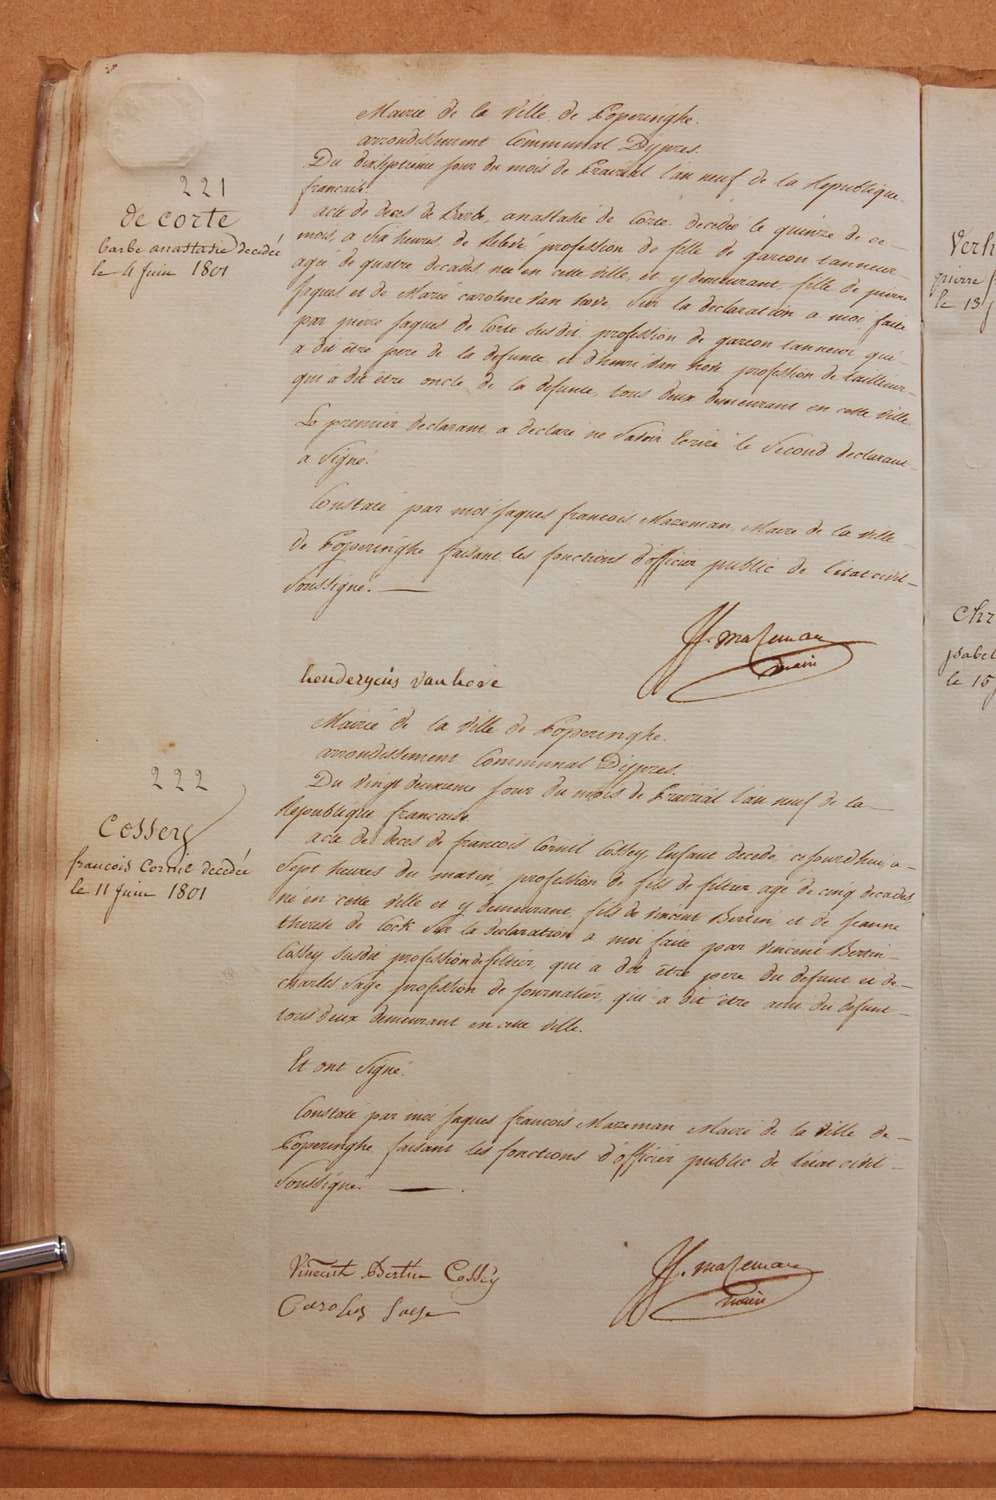 221
de Corte
barbe anastasie decedée
le 4 juin 1801
Mairie de la ville de Poperinghe.
arrondissement Communal Dijpres.
Du dixseptieme jour du mois de Prairial l'an neuf de la Republique
francaise.
acte de deces de Barbe, anastasie de Corte decedée le quinze de ce
mois, a six heures, de relevé profession de fille de garcon tanneur
agée de quatre decades née en cette ville, et y demeurant, fille de pierre
jaques et de Marie caroline van hove Sur la declaration a moi faite
par pierre jaques de Corte susdit profession de garcon tanneur qui
a dit être pere de la defunte et d'henri van hove profession de tailleur
qui a dit être oncle de la defunte, tous deux demeurant en cette ville.
Le premier declarant a declaré ne savoir Ecrire le second declarant
a signé.
Constaté par moi jaques francois Mazeman Maire de la ville
de Poperinghe faisant les fonctions d'officier public de l'etat civil
Soussigné. —
JF. mazeman
maire
henderycus van hove
222
Cossey
francois Cornil decedée
le 11 juin 1801
Mairie de la ville de Poperinghe.
arrondissement Communal Dijpres.
Du vingt deuxieme jour du mois de Prairial l'an neuf de la
Republique francaise
acte de deces de francois Cornil Cossey Enfant decedé, cejourdhui a
Sept heures du matin, profession de fils de fileur, agé de cinq decades
né en cette ville et y demeurant, fils de vincent Bertin et de jeanne
therese de Cock Sur la declaration a moi faite par vincent Bertin
Cossey susdit profession de fileur, qui a dit être pere du defunt et de
charles Sage profession de journalier, qui a dit être ami du defunt
tous deux demeurant en cette ville.
Et ont signé.
Constaté par moi jaques francois Mazeman Maire de la ville de
Poperinghe faisant les fonctions d'officier public de l'etat civil
Soussigné. —
Vincent Bertin Cossey
Carolus Saege
JF. mazeman
maire
Verh
pierre j
le 13 j
Chr
ysabel
le 15 j